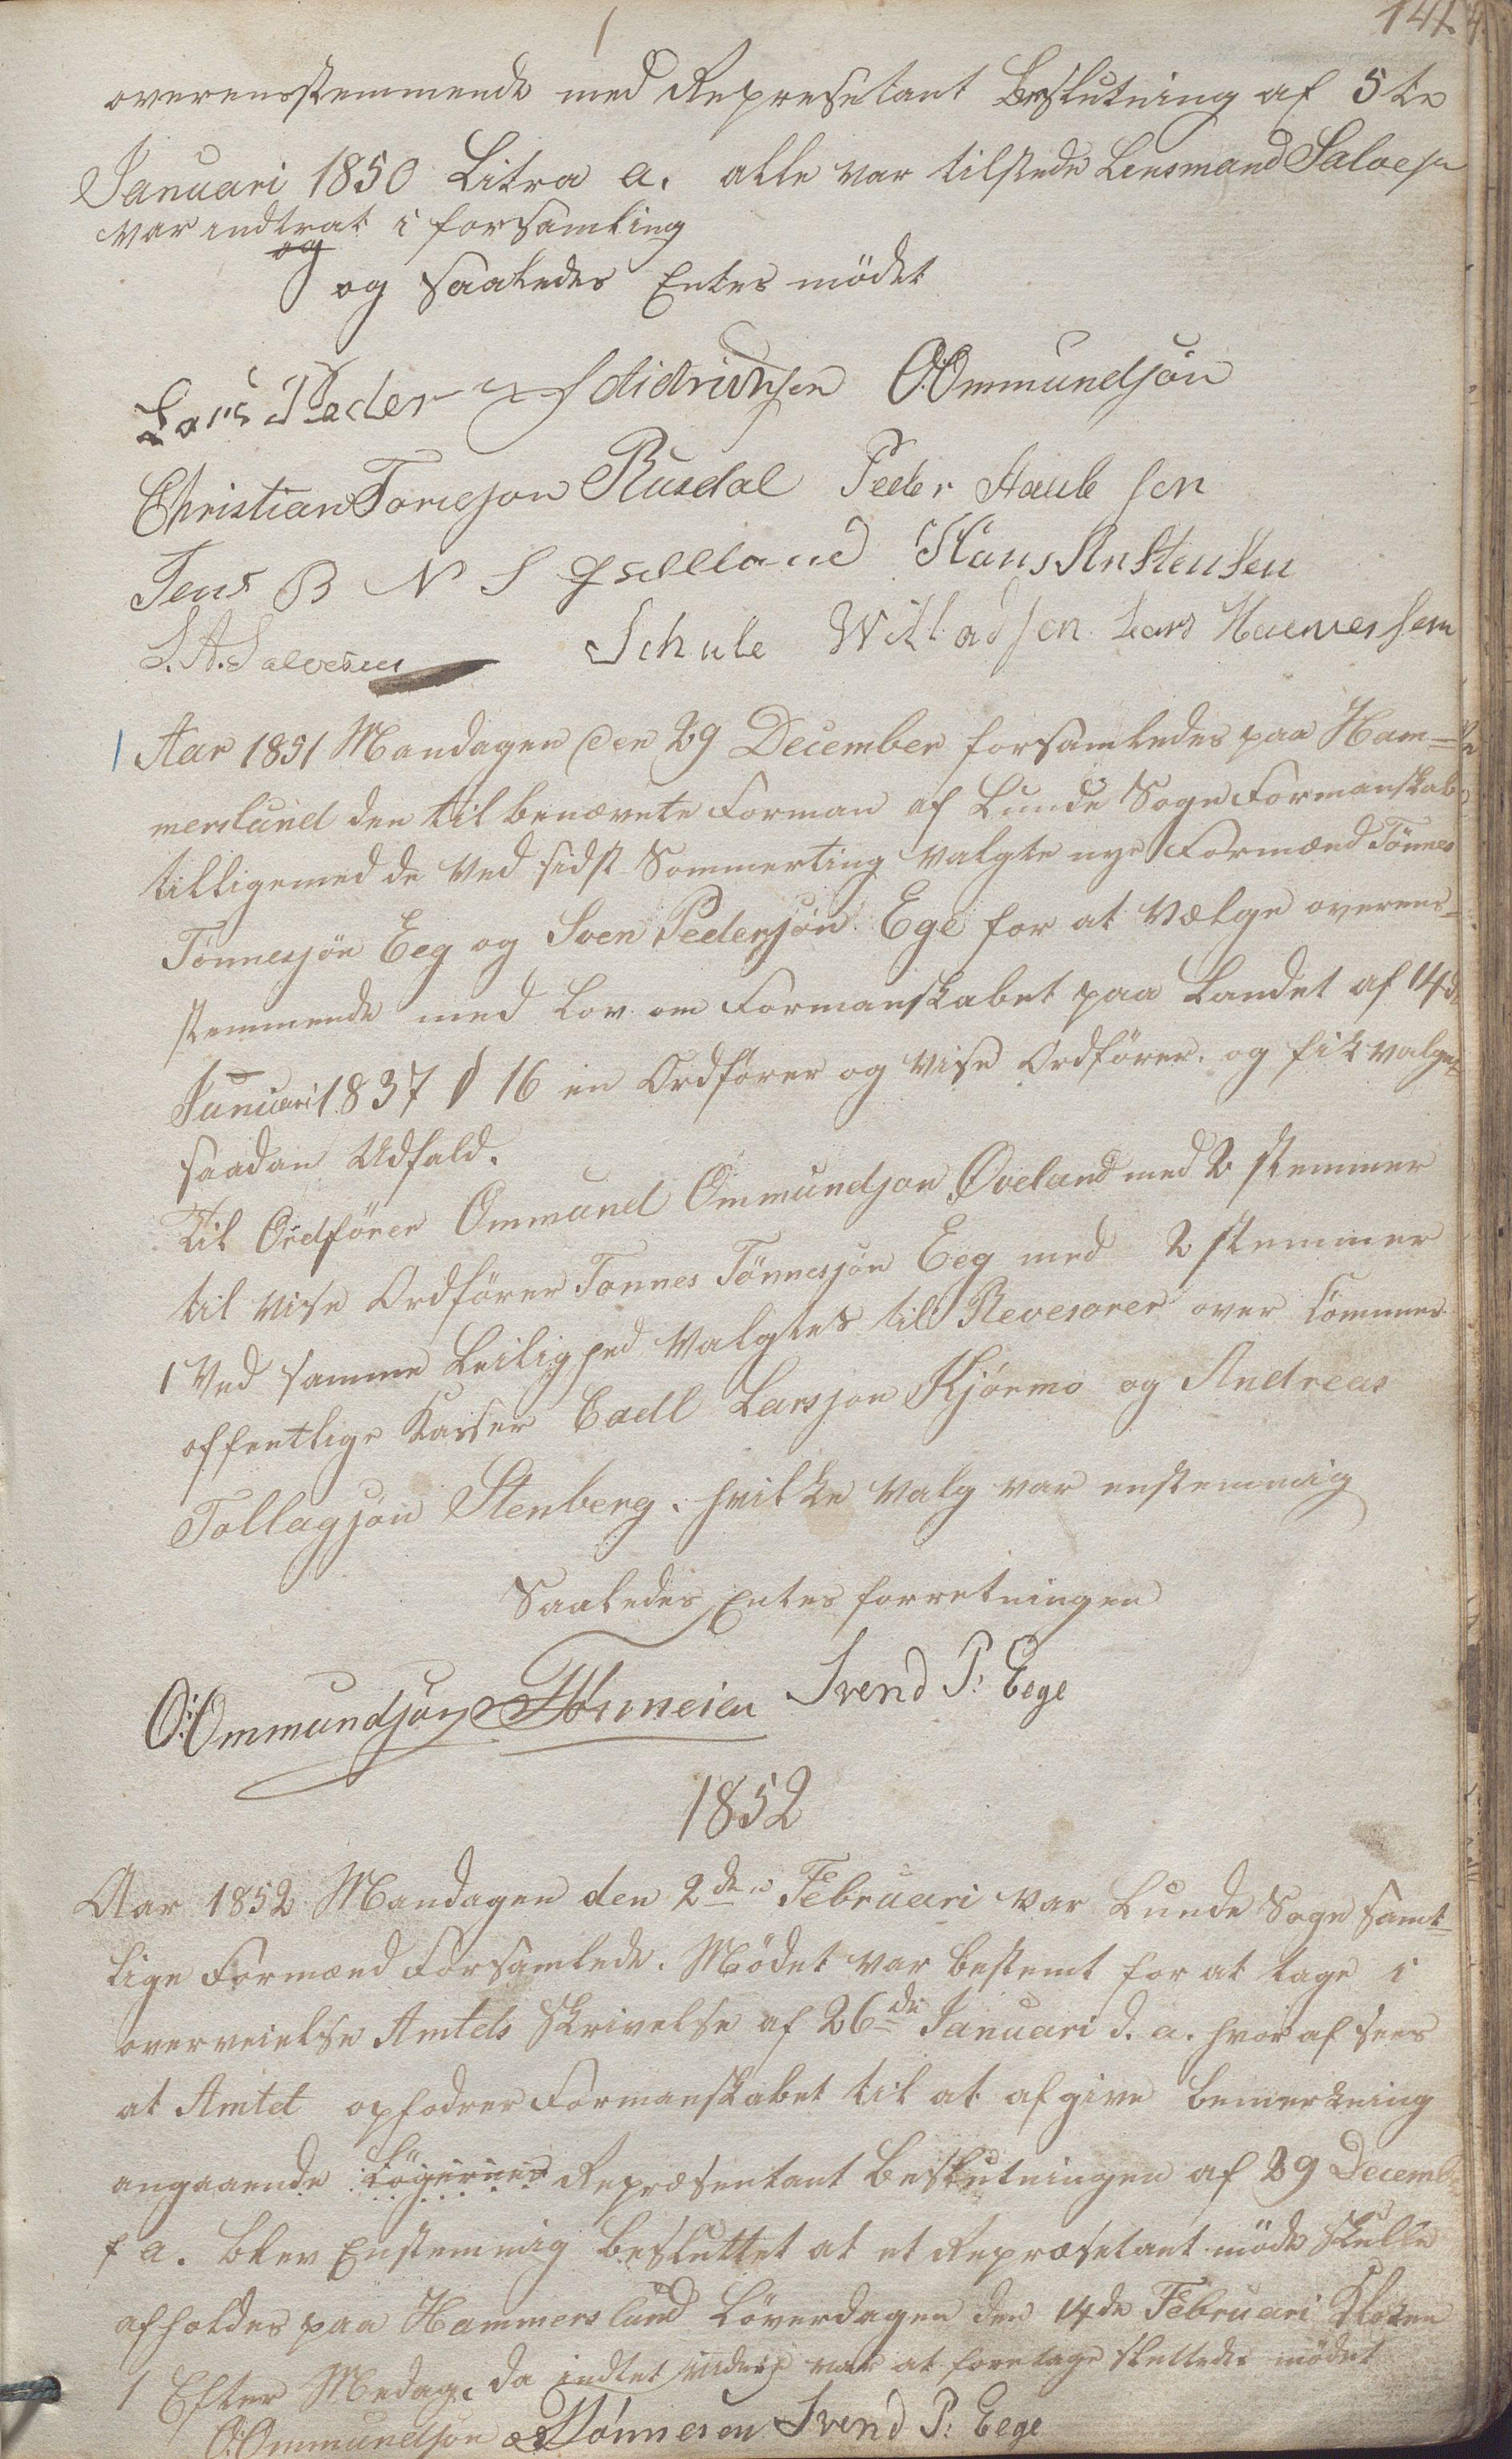 141.
overensstemmende med Represetant Beslutning af 5te
Januari 1850 Litra a. alle var tilstede Lensmand Salvesen
var indtrat i forsamling
og
og saaledes Entes mödet
Lars Peder Didrichsen O:Ommundsön
Christian Tonesson Rusdal Peder Hauk sen
Jens B N S Hans Anstensen
L. A. Salvesen Schule Willadsen Lars Hansen
Aar 1851 Mandagen den 29 December forsamledes paa Ham-
merslund den tilbenævnte Forman af Lunde Sogn Formanskab
tilligemed de ved sidst Sommerting valgte nye Formænd Tönnes
Tönnesjön Eeg og Sven Pedersjön Ege for at vælge overens-
stemmende med Lov om Formanskabet paa Landet af 14de
Januari 1837 § 16 en Ordförer og vise Ordförer. og fik valget
saadan Udfald.
Til Ordförer Ommund Ommundsjon Öveland med 2 stemmer
til vise Ordförer Tonnes Tönnesjön Eeg med 2 stemmer
1 Ved samme Leilighed Valgtes til Revesorer over Commun
offentlige Kasser Eadl Larsjon Kjörmo og Andreas
Tollagsjön Stenberg. hvilke valg var enstemmig
Saaledes Entes forretningen
O:Ommundsjön TTönnesen Svend P: Eege
1852
Aar 1852 Mandagen den 2den Februari var Lunde Sogn samt-
lige Formænd Forsamlede. Mödet var bestemt for at tage i
overveielse Amtets Skrivelse af 26de Januari d. a. hvor af sees
at Amtet opfodrer Formanskabet til at afgive bemerkning
angaaende Repræsentant Beslutningen af 29 Decemb
f a. blev Enstemmig Besluttet at et Repræsetant möde skulle
afholdes paa Hammerslund Löverdagen den 14de Februari Kloken
1 Efter Medag. da indtet videre var at foretage skeltedes mödet
O:Ommundsjön TTönnesen Svend P: Eege